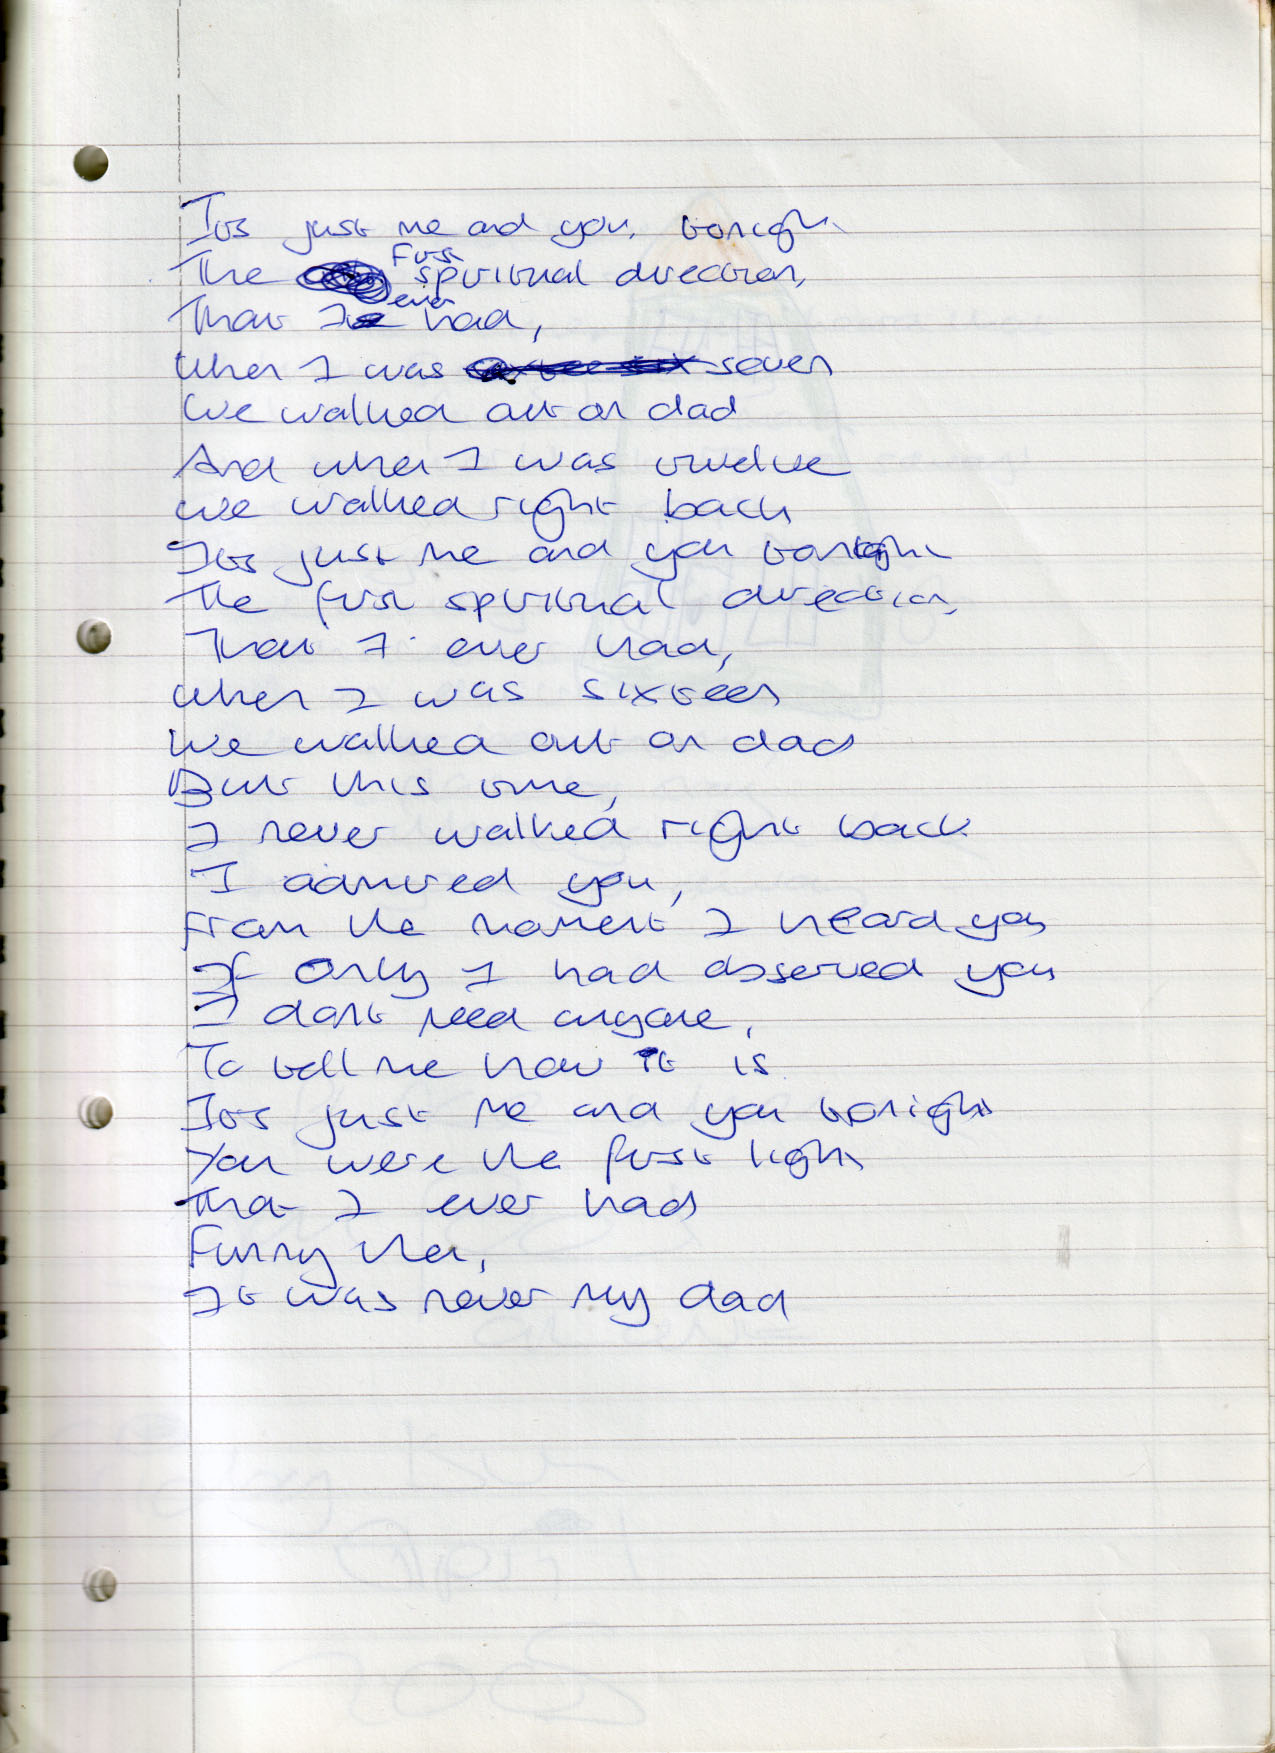 Its just me and you, tonight
The first spiritual direction,
That I ever had,
When I was seven
We walked out on dad
And when I was twelve
We walked right back
Its just me and you tonight
The first spiritual direction,
That I ever had,
When I was sixteen
We walked out on dad
But this time,
I never walked right back
I admired you,
From the moment I heard you
If only I had observed you
I dont need anyone,
To tell me how it is
Its just me and you tonight
You were the first light
That I ever had
Funny then,
It was never my dad